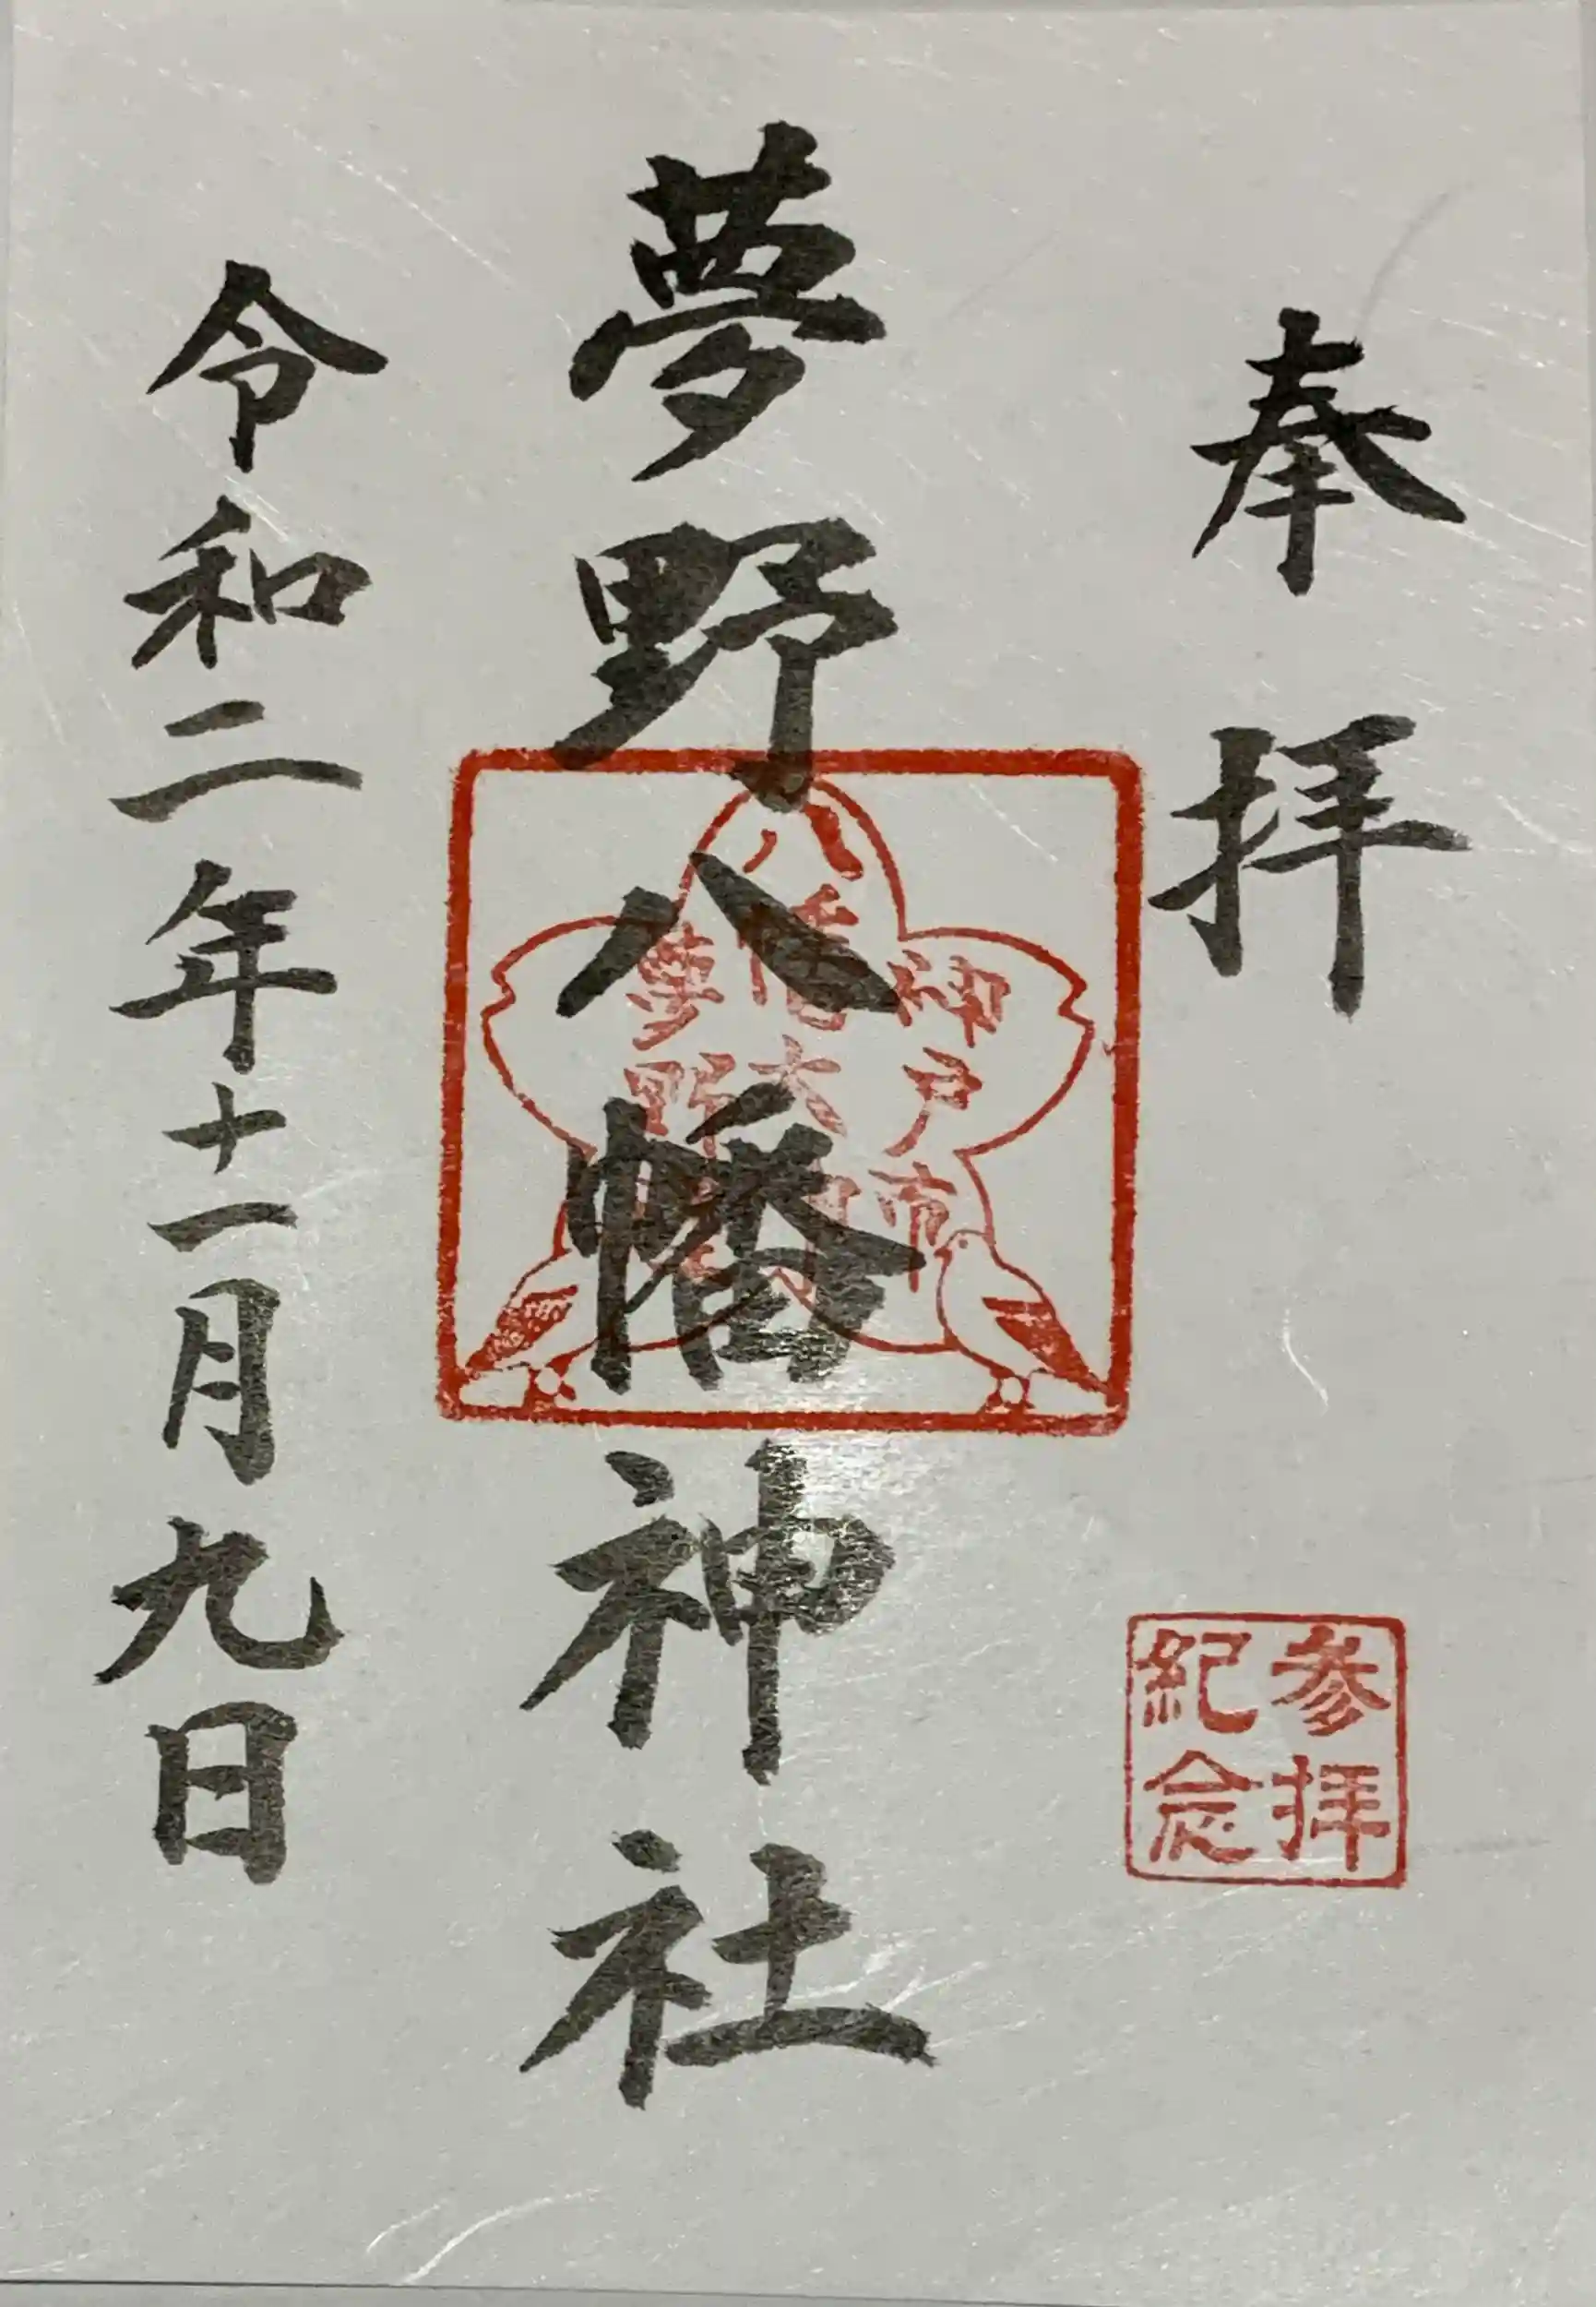 奉拝
夢野八幡神社
令和二年十一月九日
神戸市
八幡
夢野
参拝
紀念